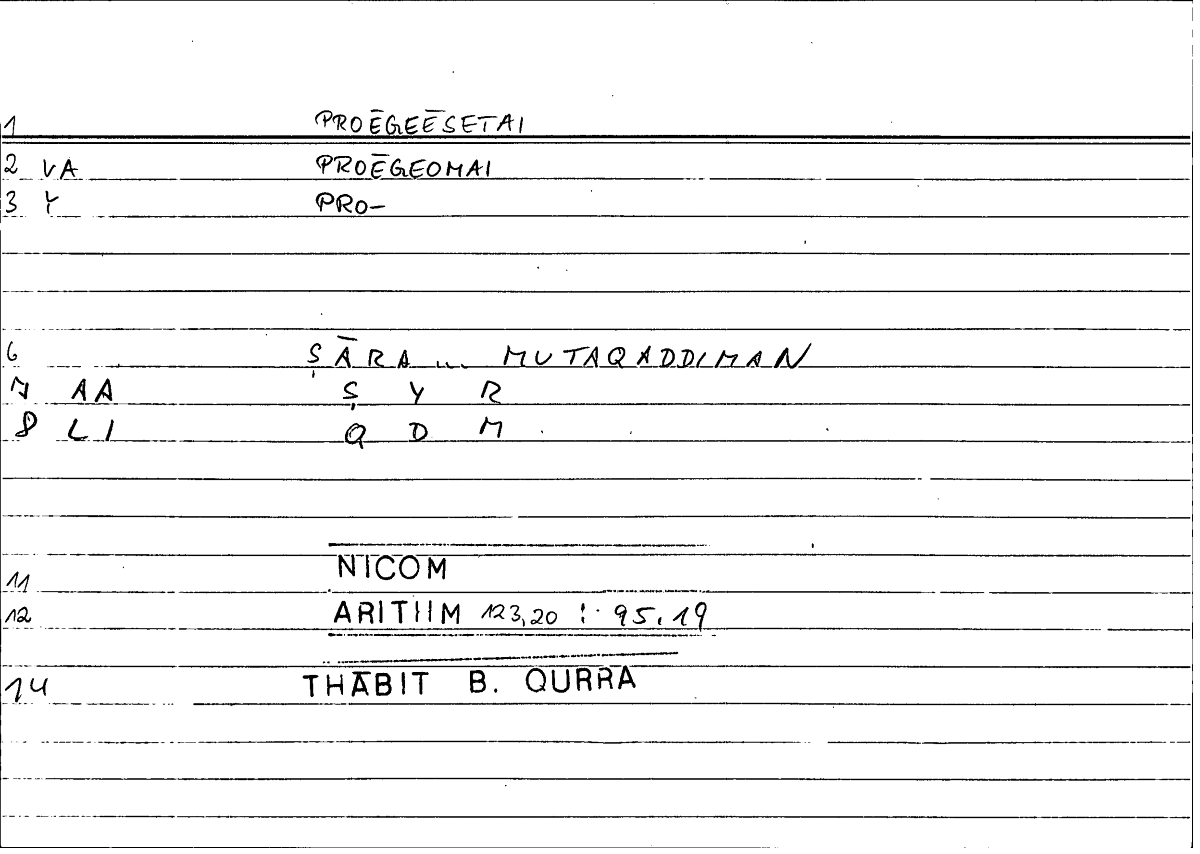 1 PROĒGEĒSETAI
2 VA PROĒGEOMAI
3 Y PRO-
6 ṢĀRA ... MUTAQADDIMAN
7 AA Ṣ Y R
8 LI Q D M
NICOM
11
12 ARITHM 123,20 : 95.19
14 THĀBIT B. QURRA